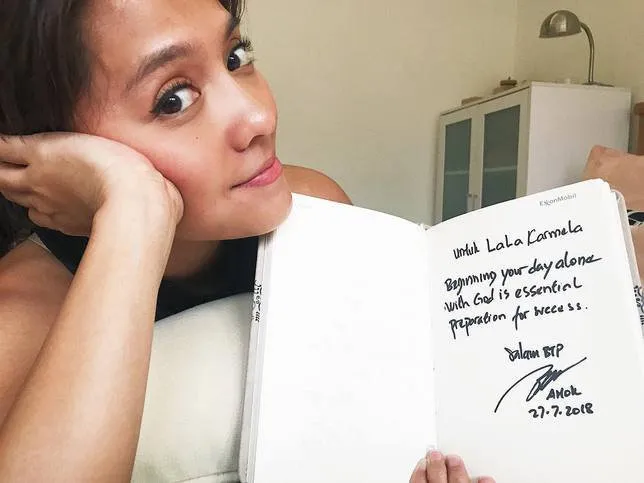 ExxonMobil
untuk Lala Karmela
Beginning your day alone
with God is essential
preparation for success.
Salam BTP
AHOK
27.7.2018